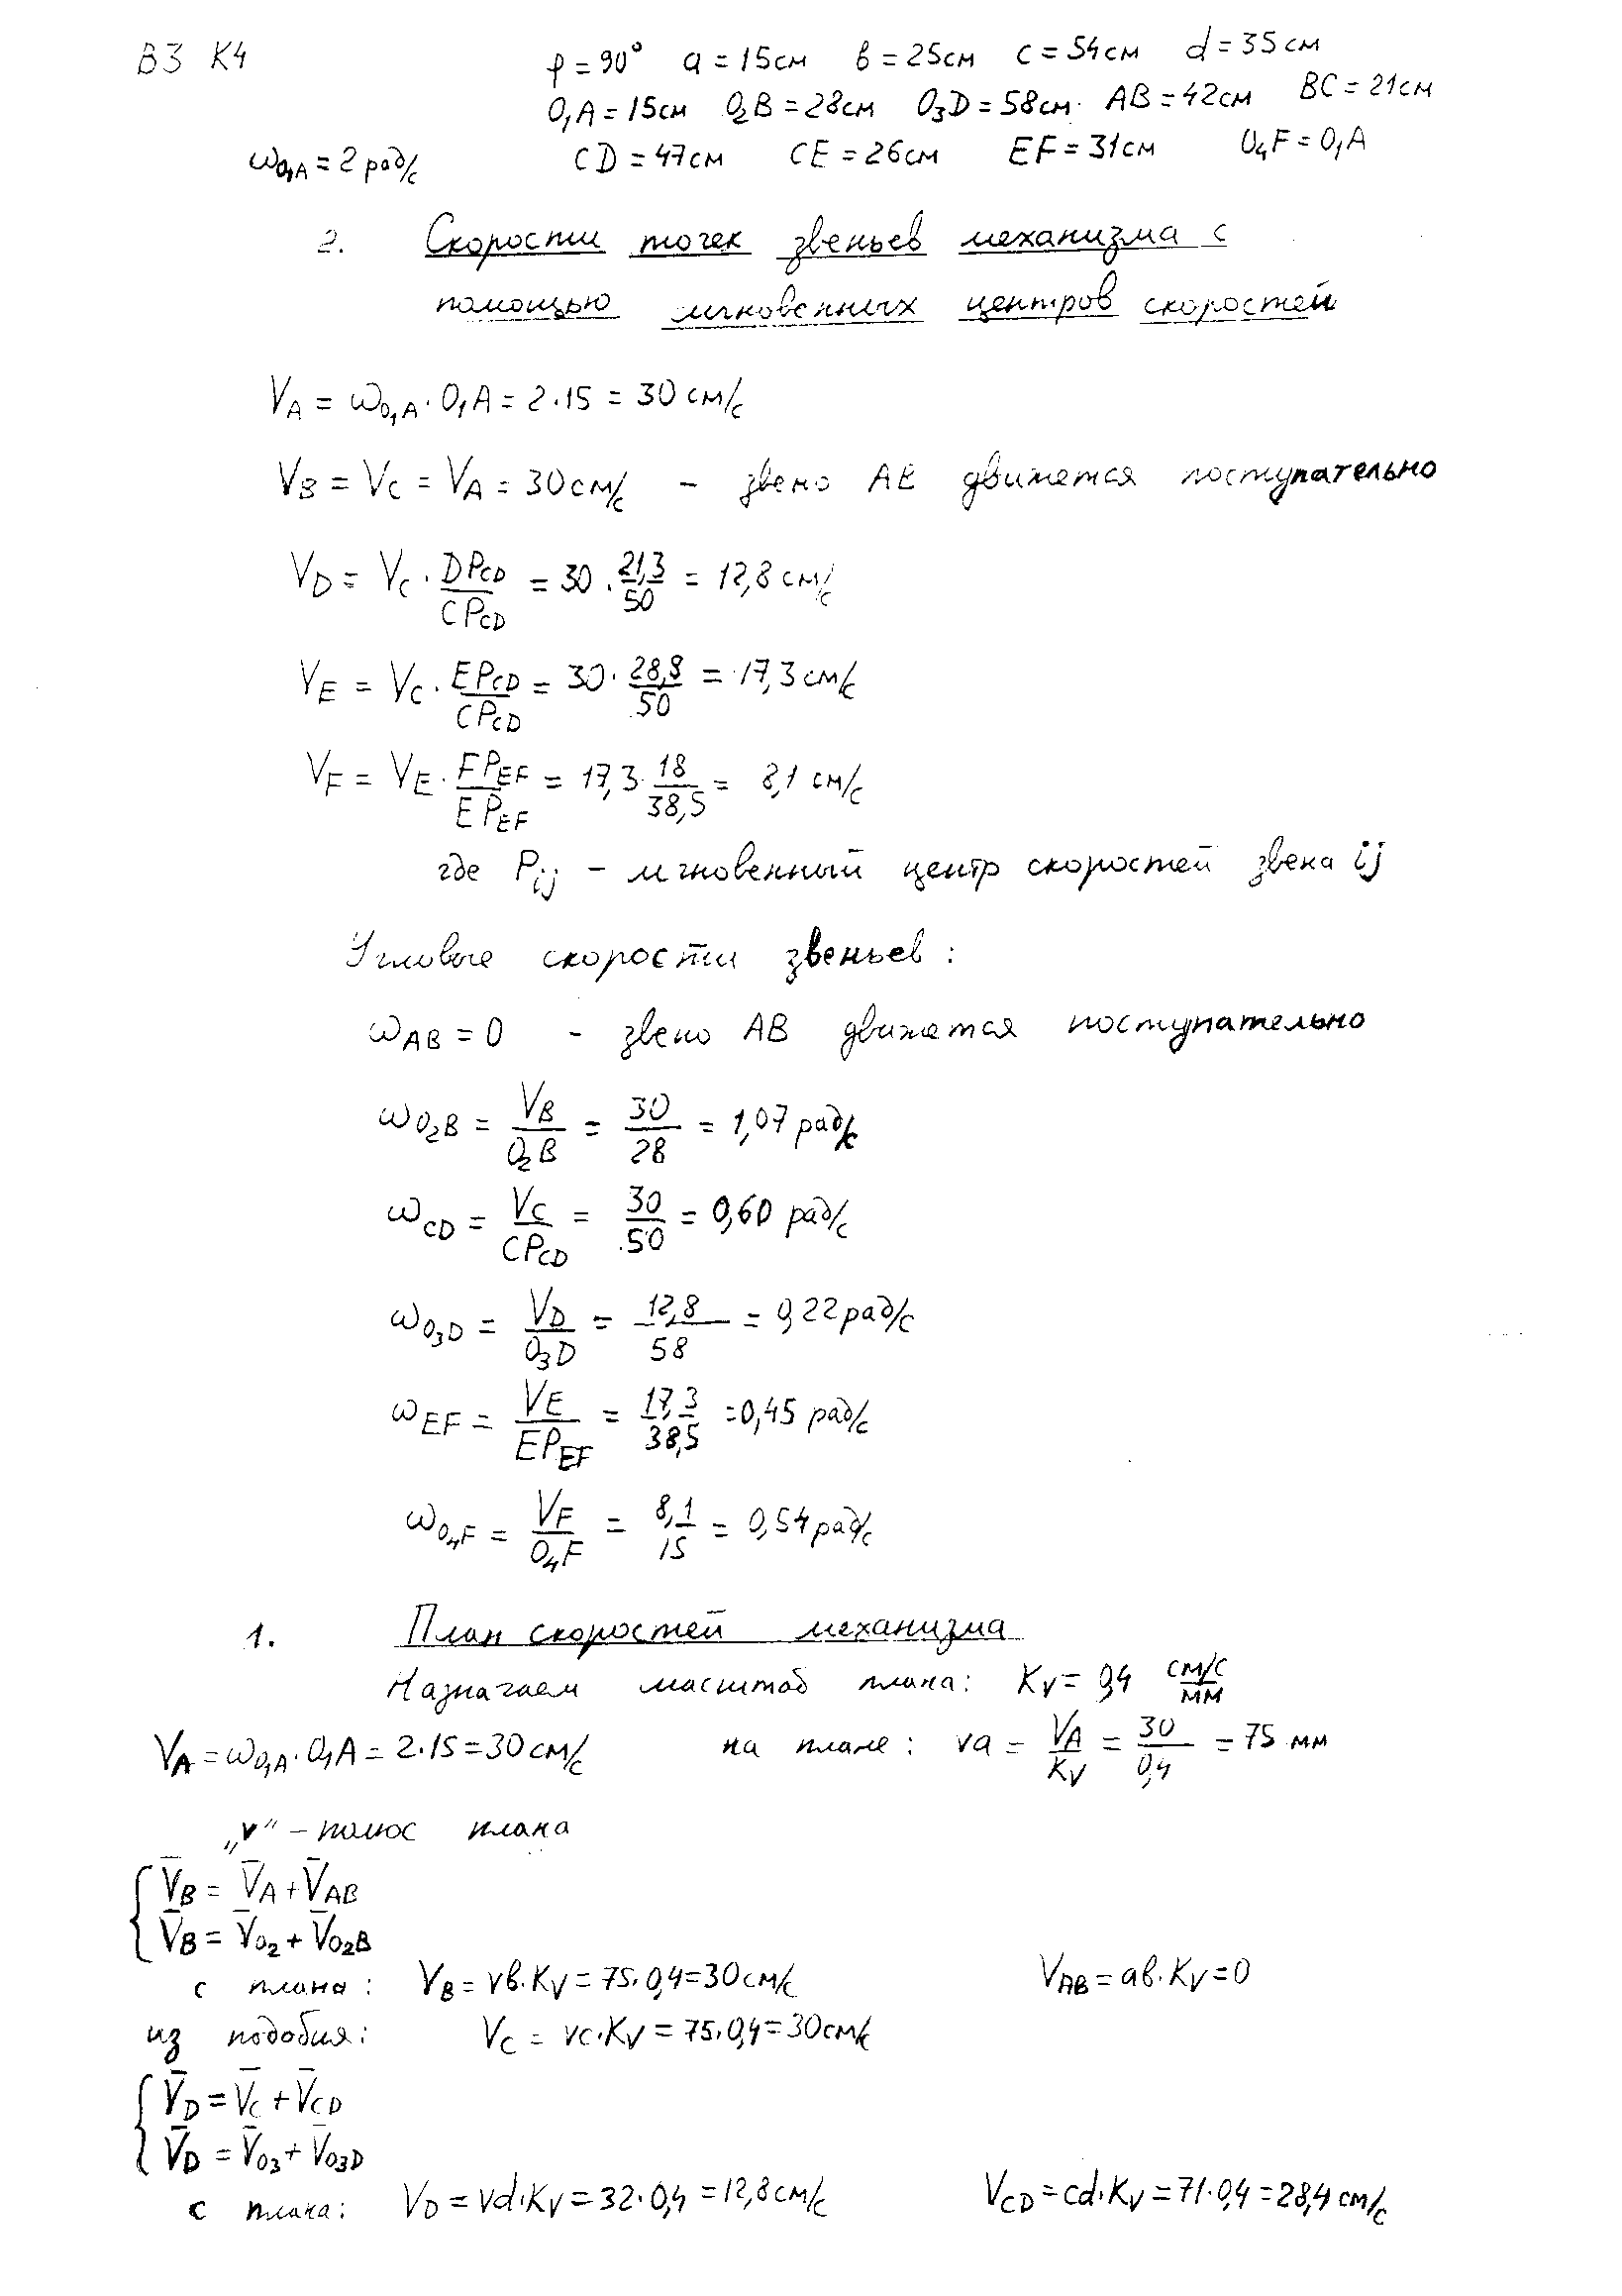 В3 К4
φ = 90° a = 15см в = 25см c = 54см d = 35см
O₁A = 15см O₂B = 28см O₃D = 58см AB = 42см BC = 21см
ω_O₁A = 2 рад/с CD = 47см CE = 26см EF = 31см O₄F = O₁A
2. Скорости точек звеньев механизма с
помощью мгновенных центров скоростей
V_A = ω_O₁A · O₁A = 2·15 = 30 см/с
V_B = V_C = V_A = 30см/с - звено AB движется поступательно
V_D = V_C · DP_CD/CP_CD = 30 · 21,3/50 = 12,8 см/с
V_E = V_C · EP_CD/CP_CD = 30 · 28,8/50 = 17,3 см/с
V_F = V_E · FP_EF/EP_EF = 17,3 · 18/38,5 = 8,1 см/с
где P_ij - мгновенный центр скоростей звена ij
Угловые скорости звеньев:
ω_AB = 0 - звено AB движется поступательно
ω_O₂B = V_B/O₂B = 30/28 = 1,07 рад/с
ω_CD = V_C/CP_CD = 30/50 = 0,60 рад/с
ω_O₃D = V_D/O₃D = 12,8/58 = 0,22 рад/с
ω_EF = V_E/EP_EF = 17,3/38,5 = 0,45 рад/с
ω_O₄F = V_F/O₄F = 8,1/15 = 0,54 рад/с
1. План скоростей механизма
Назначаем масштаб плана: K_V = 0,4 см/с/мм
V_A = ω_O₁A · O₁A = 2·15 = 30 см/с на плане: va = V_A/K_V = 30/0,4 = 75 мм
„v" - полюс плана
V̄_B = V̄_A + V̄_AB
V̄_B = V̄_O₂ + V̄_O₂B
с плана: V_B = vв·K_V = 75·0,4 = 30 см/с V_AB = aв·K_V = 0
из подобия: V_C = vc·K_V = 75·0,4 = 30 см/с
V̄_D = V̄_C + V̄_CD
V̄_D = V̄_O₃ + V̄_O₃D
с плана: V_D = vd·K_V = 32·0,4 = 12,8 см/с V_CD = cd·K_V = 71·0,4 = 28,4 см/с